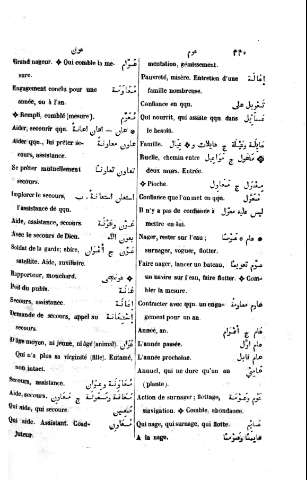 عون
عوم
٤٤٠
Grand nageur. ❖ Qui comble la me- عَوَّام
sure.
Engagement conclu pour une مُعَاوَمَة
année, ou à l'an.
❖ Rempli, comblé (mesure).
Aider, secourir qqn.
Aider qqn., lui prêter se- عاون معاونة
cours, assistance.
Se prêter mutuellement تعاون تعاونًا
secours.
Implorer le secours, استعان استعانة ب
l'assistance de qqn.
Aide, assistance, secours
Avec le secours de Dieu. بعون الله
Soldat de la garde; sbire, عون ج أعوان
satellite. Aide, auxiliaire.
Rapporteur, mouchard.
Poil du pubis. عانة
Secours, assistance. إعانة
Demande de secours, appel au استعانة
secours.
D'âge moyen, ni jeune, ni âgé (animal). عوان
Qui n'a plus sa virginité (fille). Entamé,
non intact.
Secours, assistance.
Aide, secours.
Qui aide, qui secoure.
Qui aide. Assistant. Coad-
juteur.
mentation, gémissement.
Pauvreté, misère. Entretien d'une إعالة
famille nombreuse.
Confiance en qqn. تعويل على
Qui nourrit, qui assiste qqn dans
le besoin.
Famille.
Ruelle, chemin entre
deux rues.
❖ Pioche. معول ج معاول
Confiance que l'on met en qqn. معوّل
Il n'y a pas de confiance à ليس عليه معوّل
mettre en lui.
Nager, rester sur l'eau; عام o عومًا
surnager, voguer, flotter.
Faire nager, lancer un bateau, عوّم تعويمًا
un navire sur l'eau, faire flotter. ❖ Com-
bler la mesure.
Contracter avec qqn. un enga- عاوم معاومة
gement pour une année.
Année, an. عام ج أعوام
L'année passée. عام أوّل
L'année prochaine. عام قابل
Annuel, qui ne dure qu'un an عاميّ
(plante).
Action de surnager; flottage,
navigation. ❖ Comble, abondance.
Qui nage, qui surnage, qui flotte. عائم
A la nage.